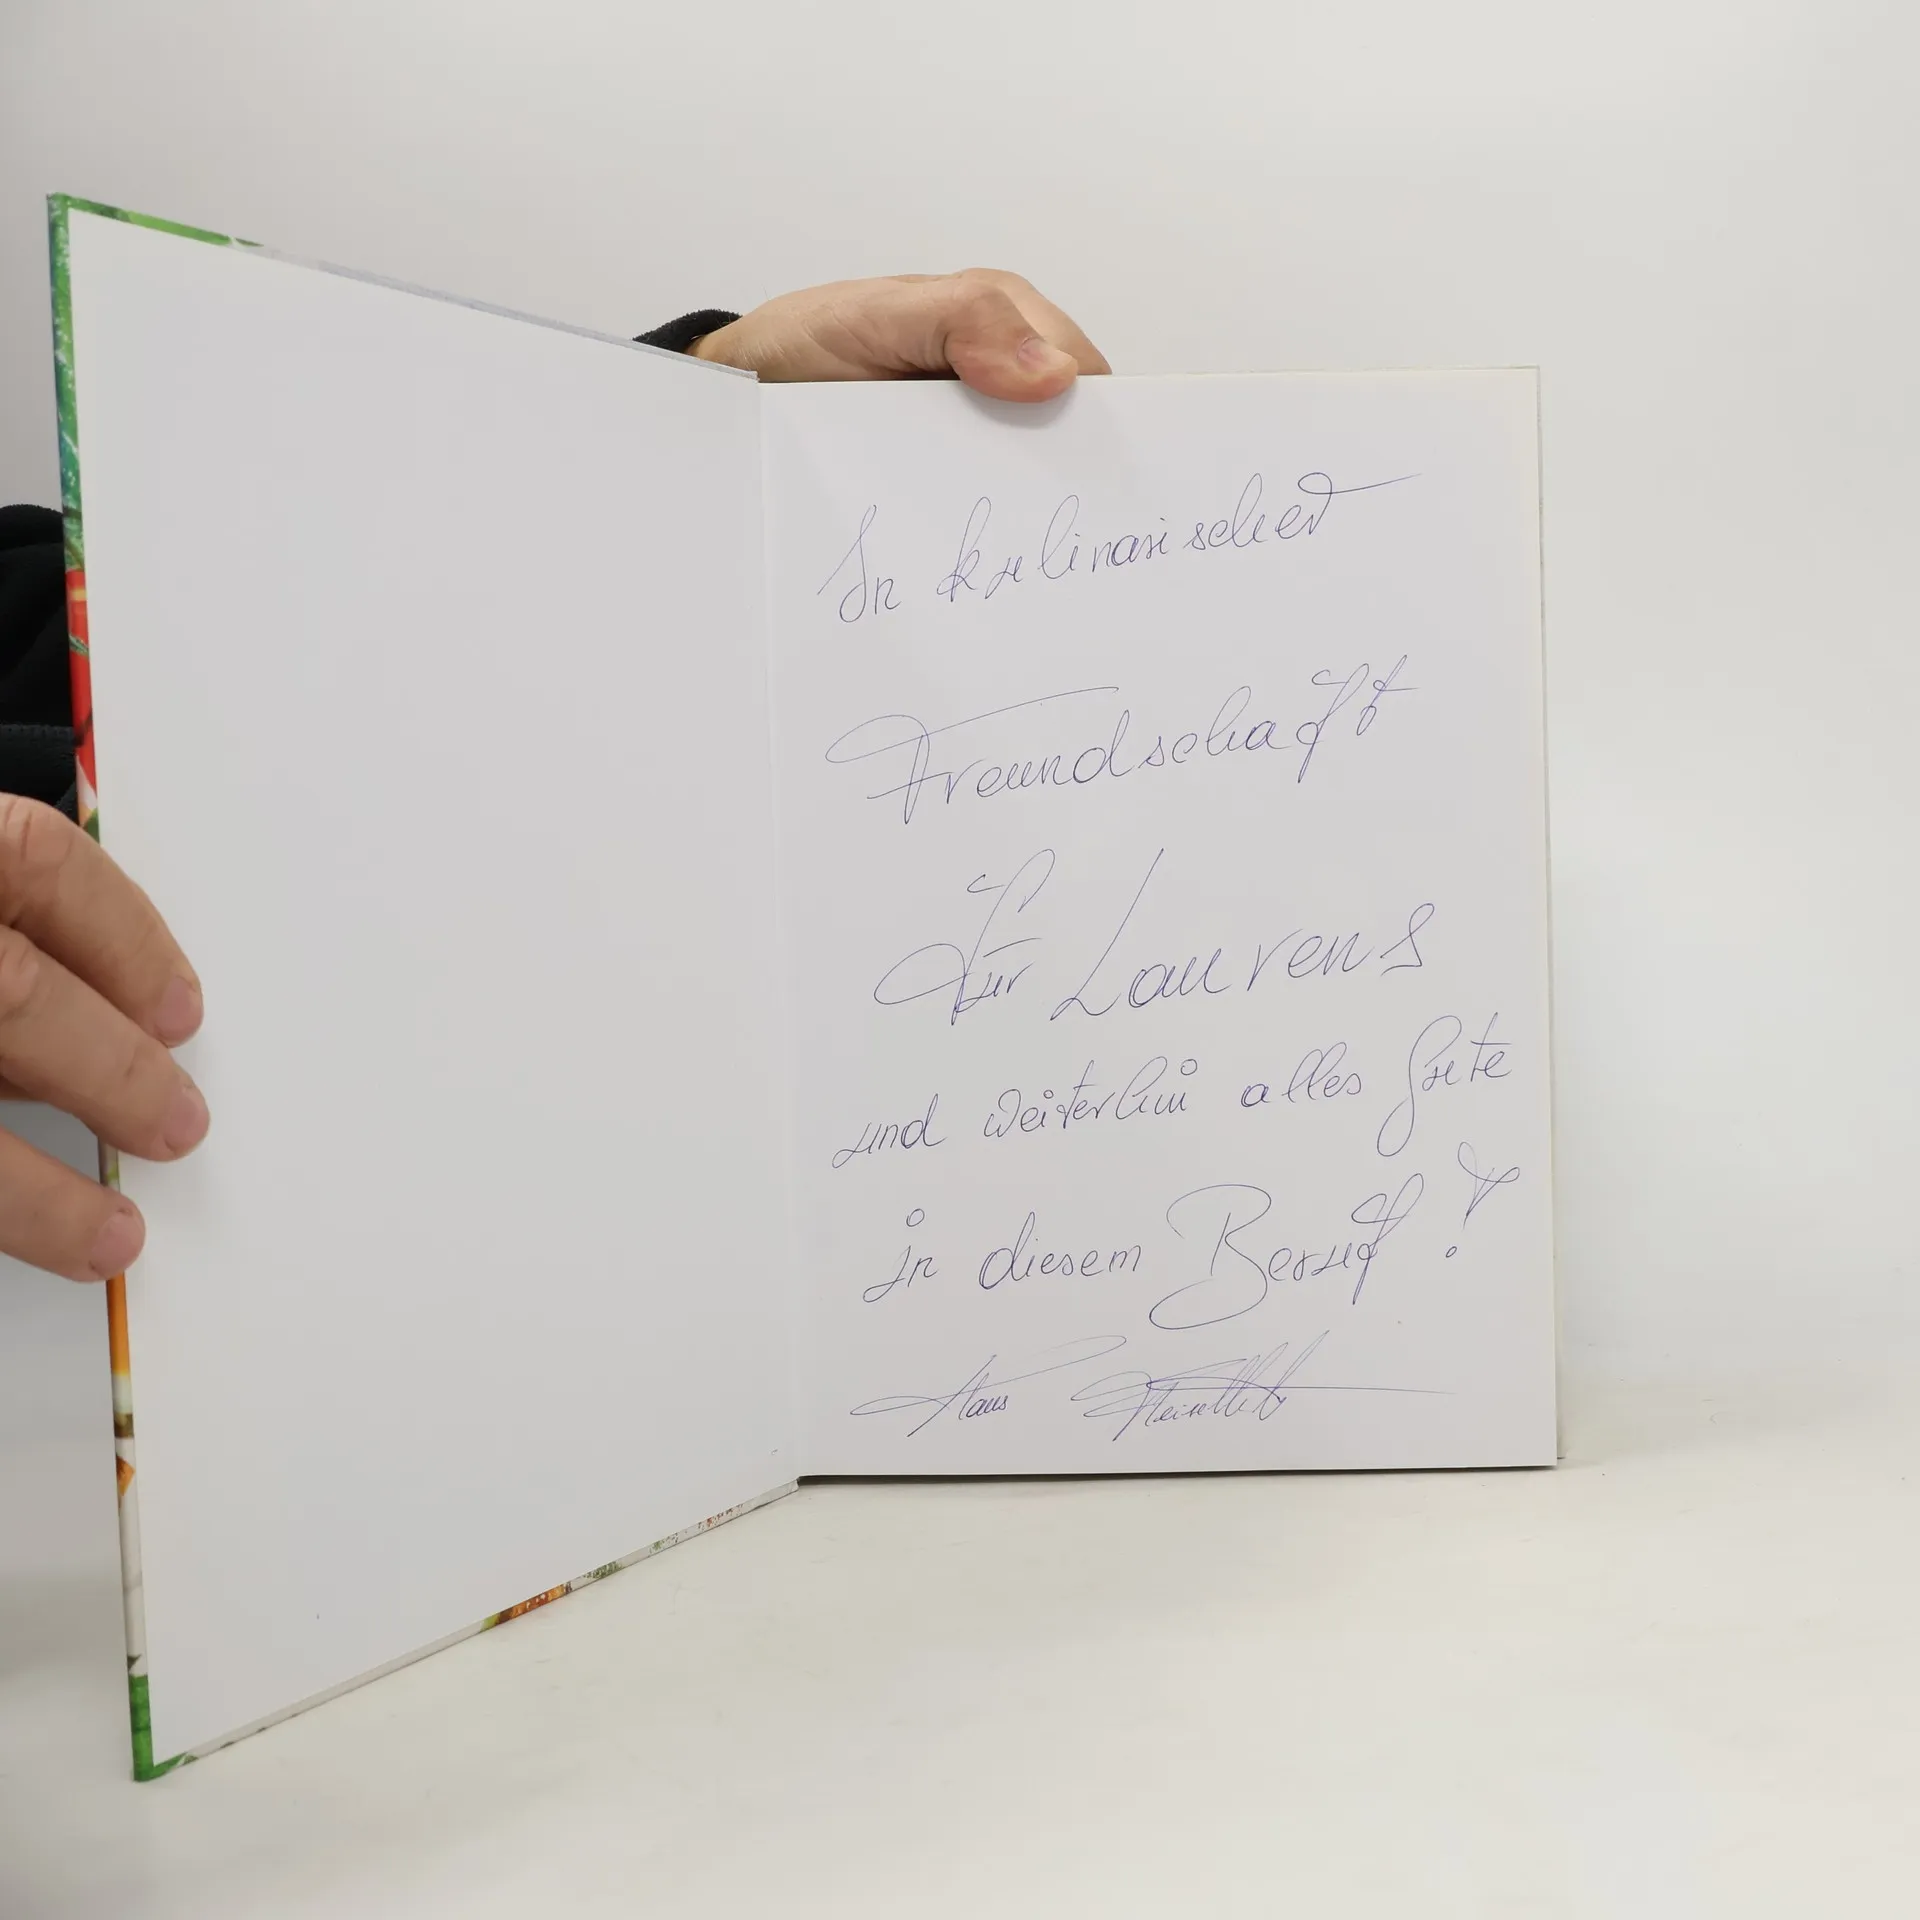 In kulinarischer
Freundschaft
Für Laurens
und weiterhin alles Gute
in diesem Beruf!